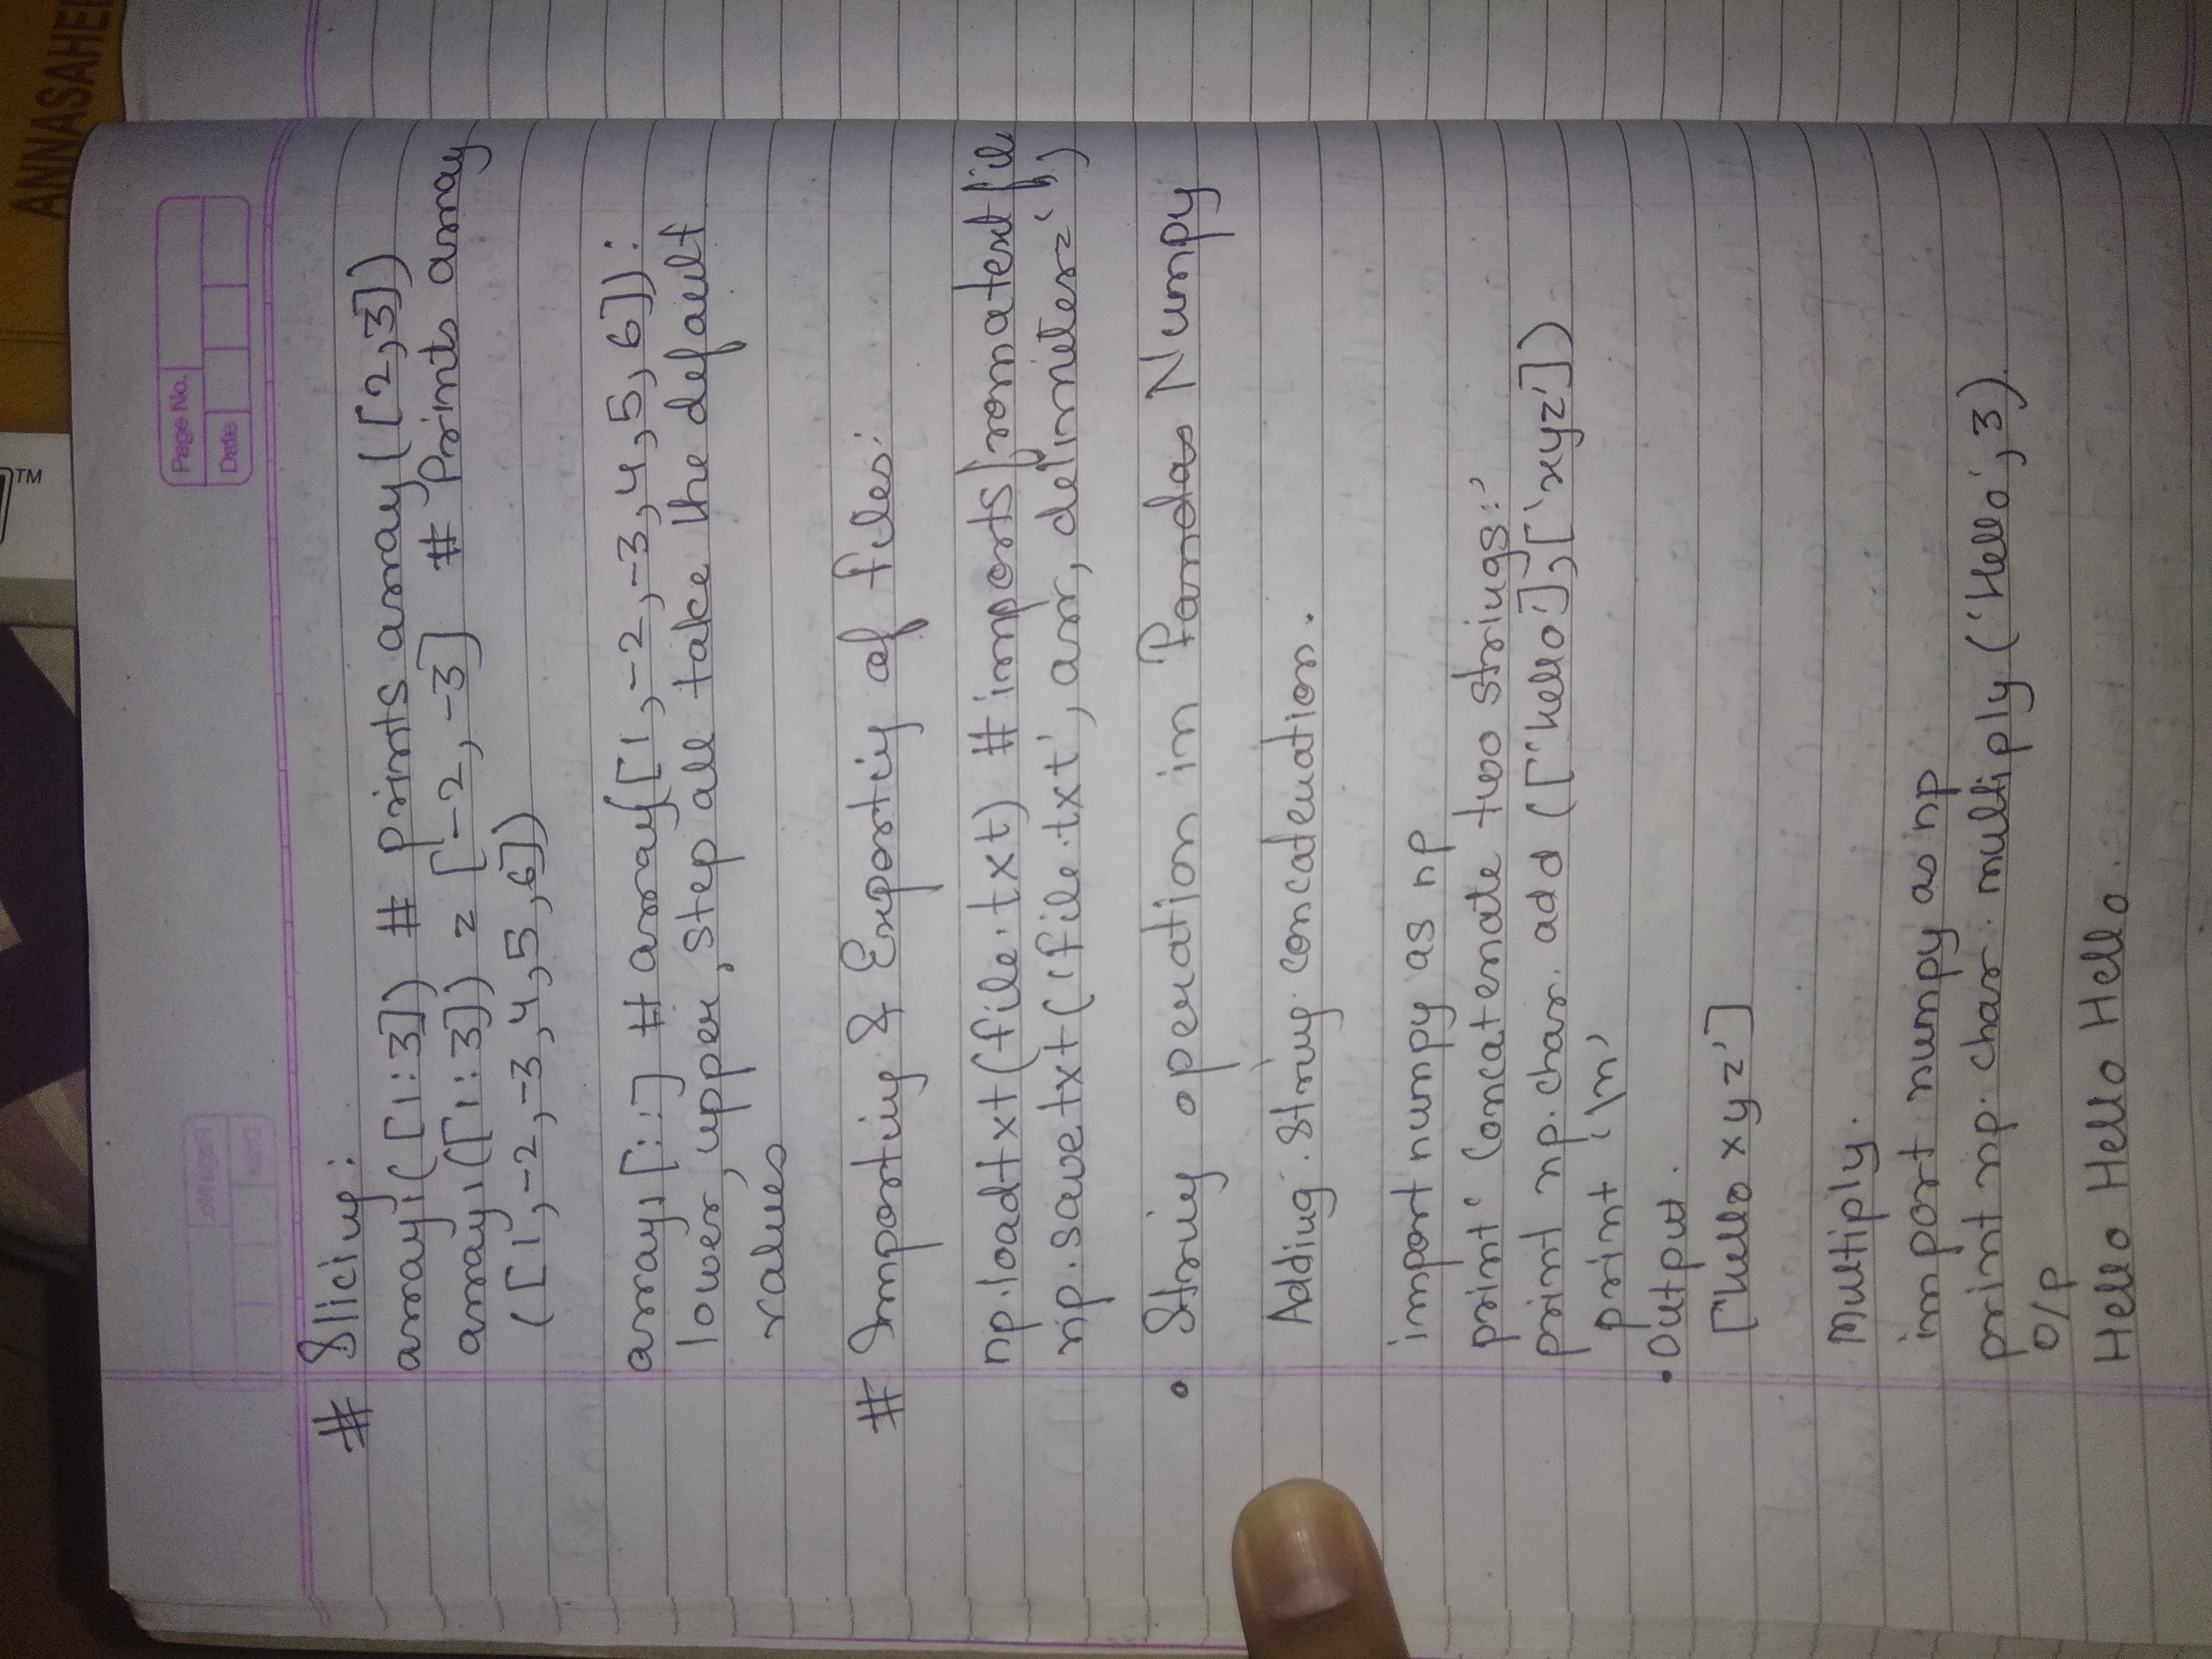 ANNASAHE
TM
Page No.
Date
# Slicing:
array1([1:3]) # prints array([2,3])
array1([1:3]) = [-2,-3] # Prints array
([1,-2,-3,4,5,6])
array1[::] # array([1,-2,-3,4,5,6]):
lower, upper, step all take the default
values
# Importing & Exporting of files:
np.loadtxt(file.txt) # imports from a text file
np.savetxt('file.txt', arr, delimiter=' ')
• String operation in Pandas Numpy
Adding. String concatenation.
import numpy as np
print' Concatenate two strings:'
print np.char.add(['hello'],['xyz'])
print '\n'
• Output.
['hello xyz']
Multiply.
import numpy as np
print np.char.multiply('Hello',3)
O/p
Hello Hello Hello.